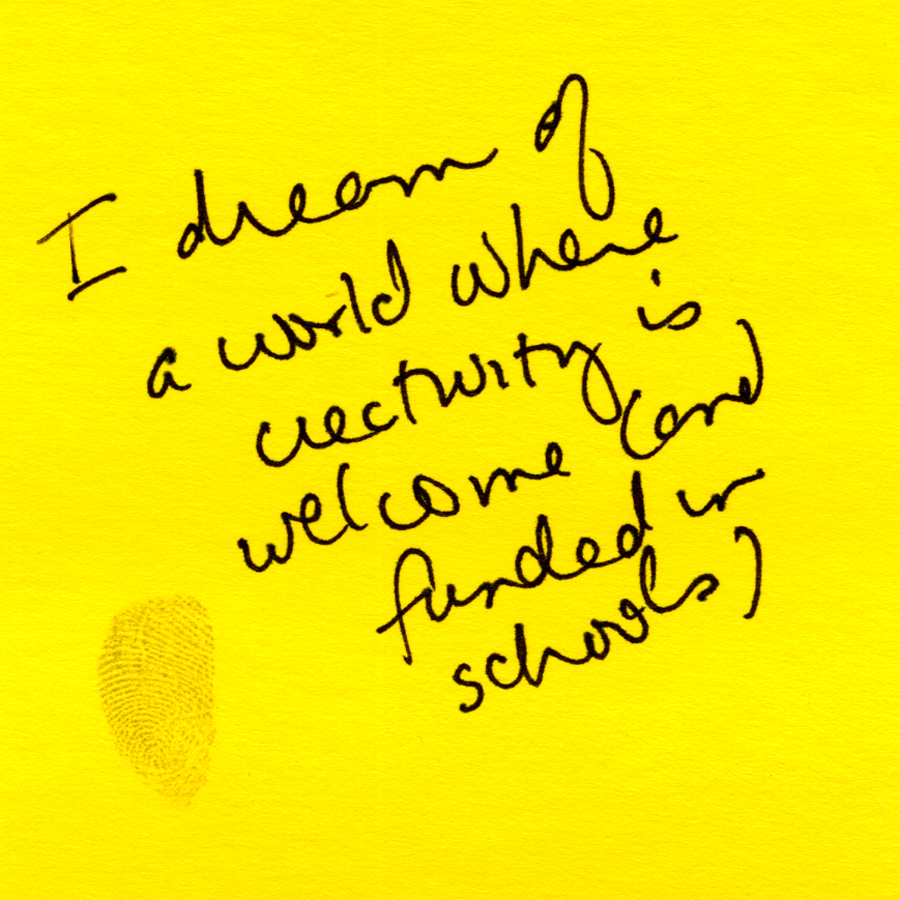 I dream of
a world where
creativity is
welcome (and
funded in
schools)